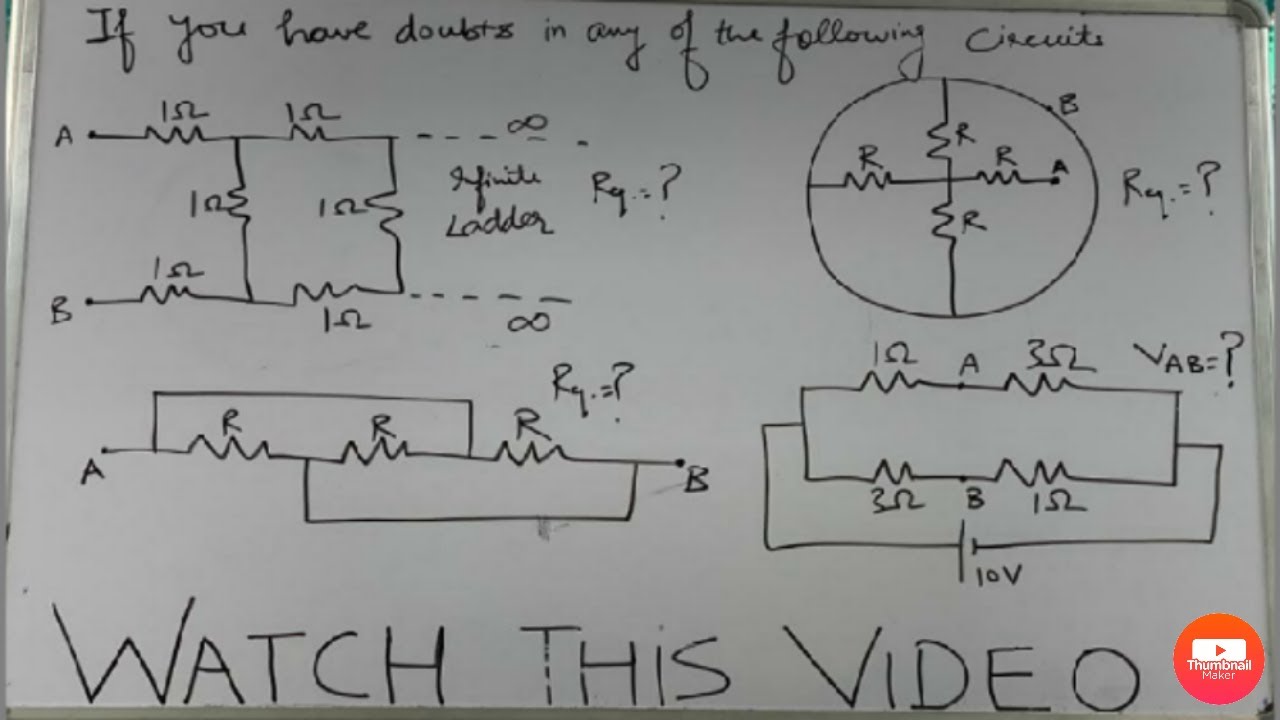 If you have doubts in any of the following Circuits
1Ω 1Ω
A ∞
1Ω 1Ω
Infinite
Ladder
Req.=?
1Ω
B 1Ω
∞
B
R R R
A
R
Req.=?
Req.=?
R R R
A B
1Ω A 3Ω
VAB=?
3Ω B 1Ω
10V
WATCH THIS VIDEO
Thumbnail
Maker